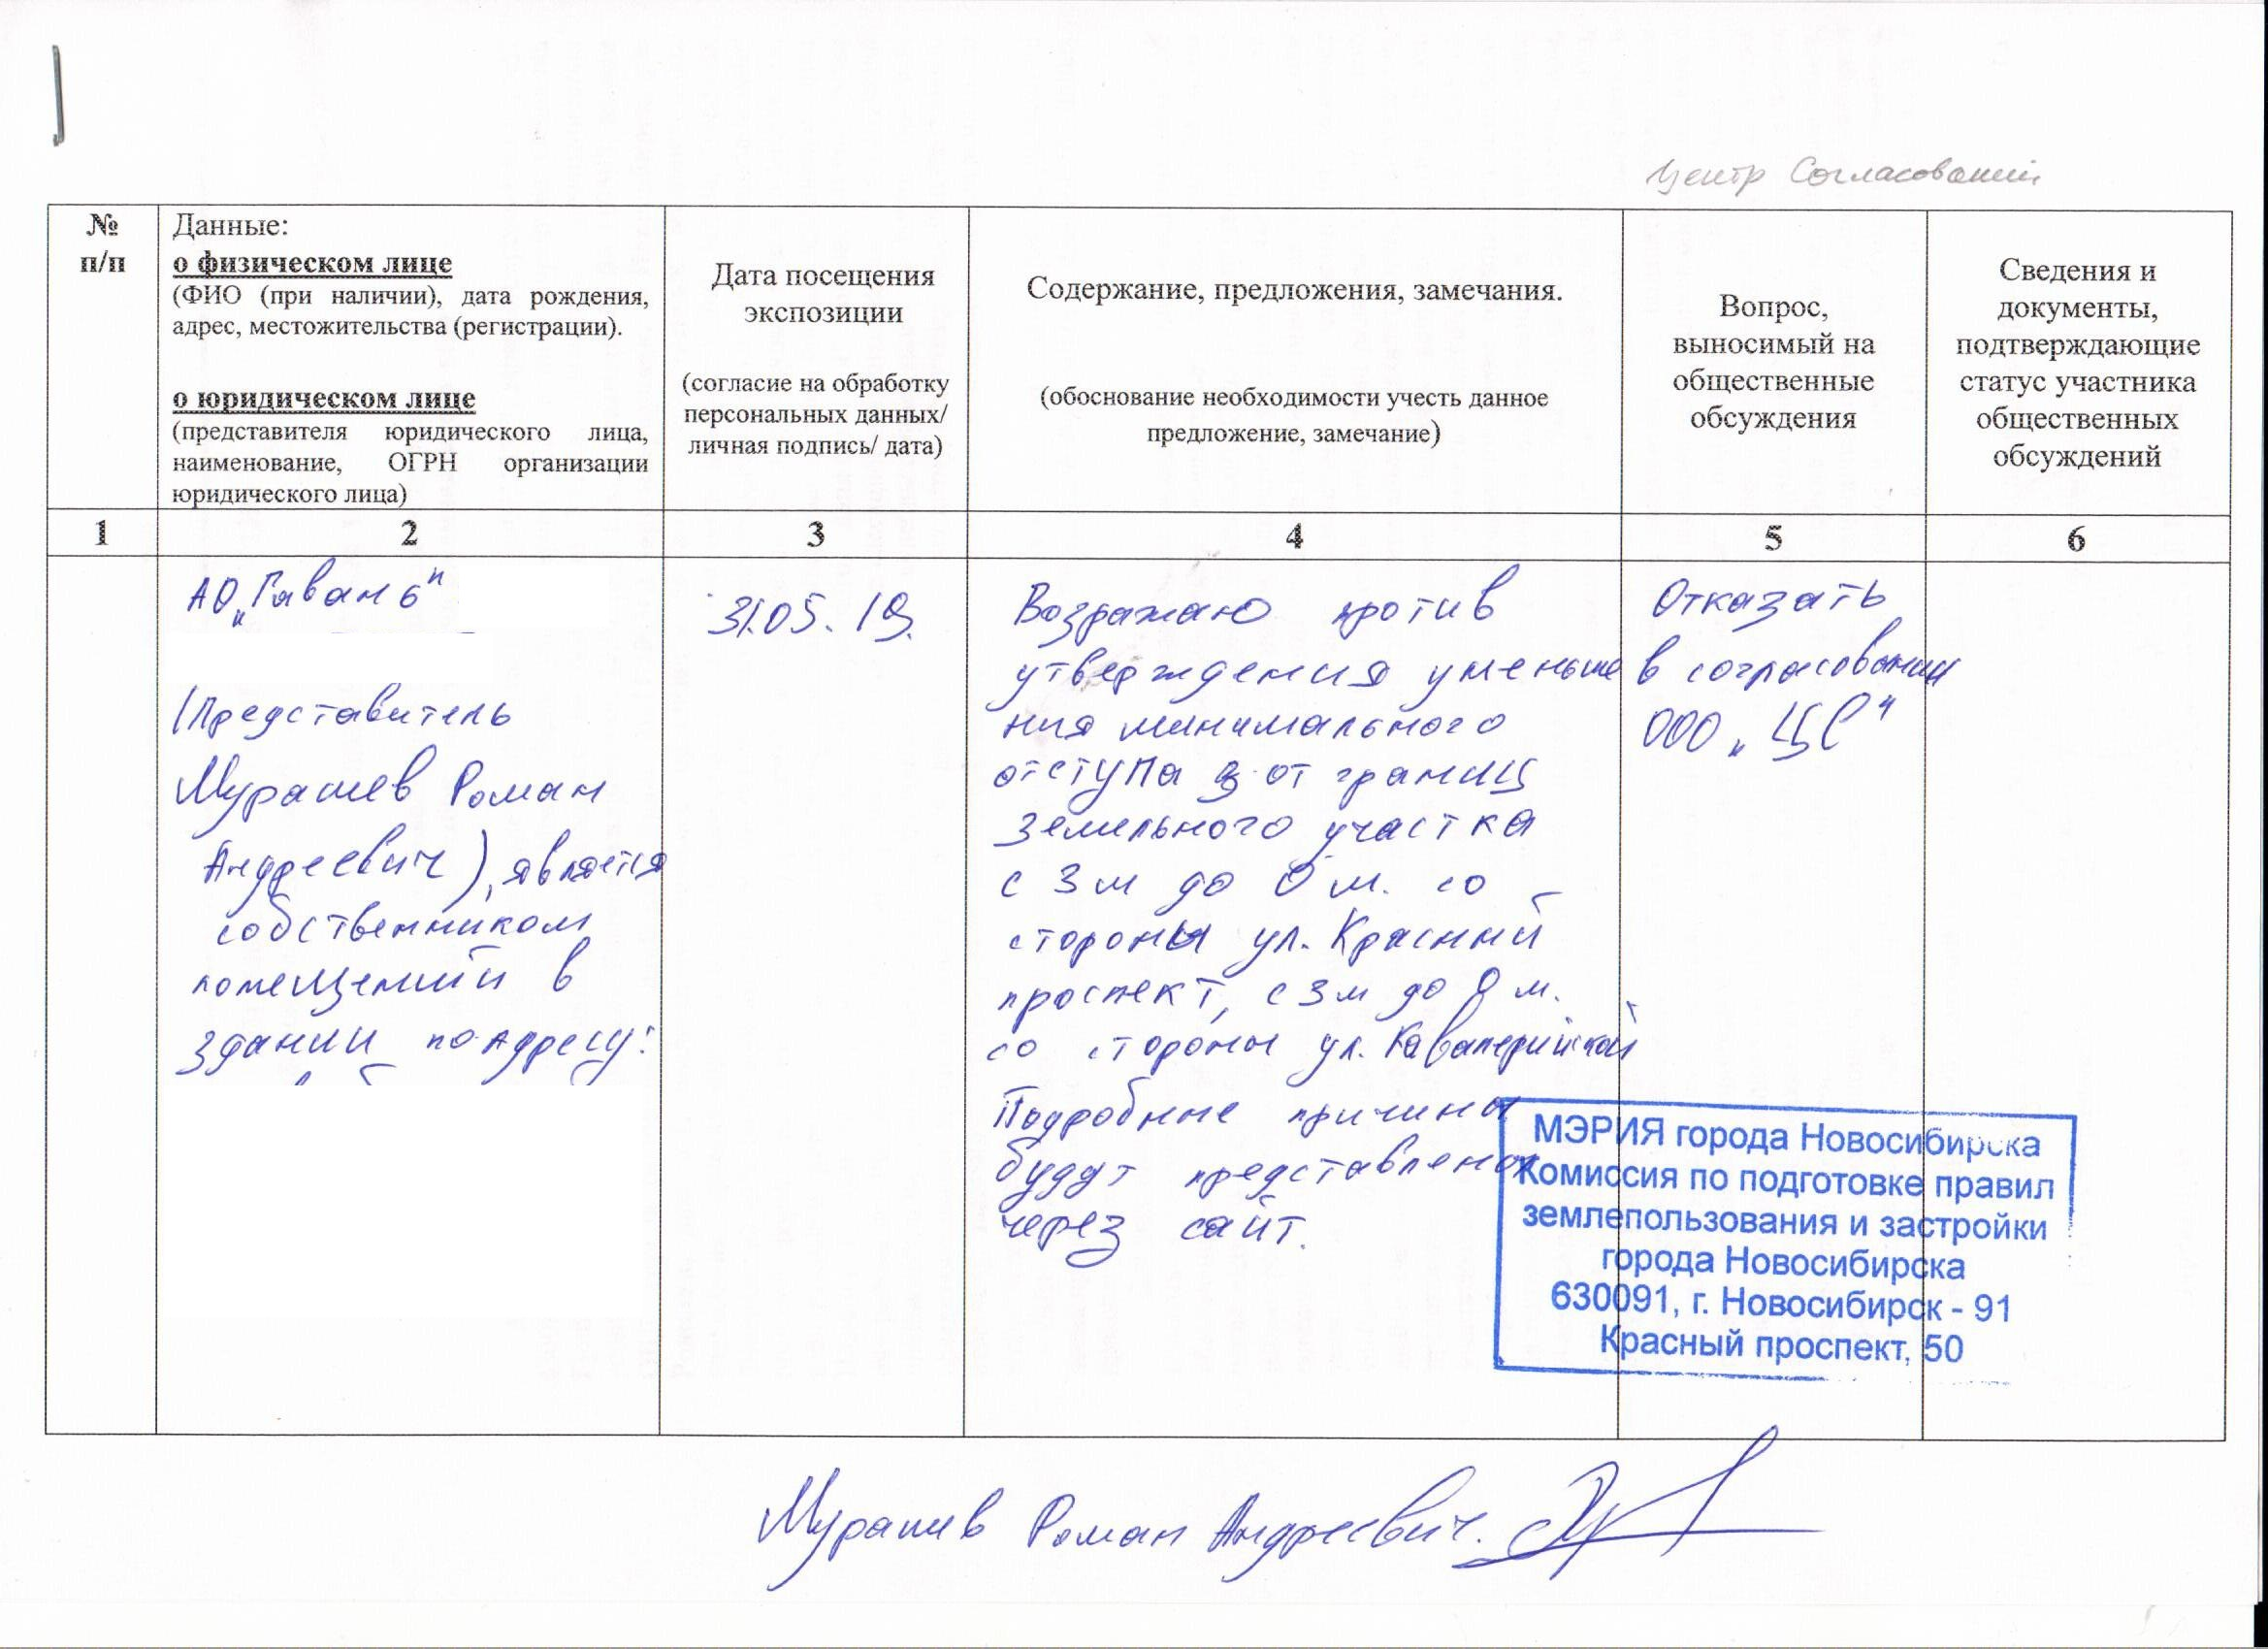 Центр Согласований
№
п/п
Данные:
о физическом лице
(ФИО (при наличии), дата рождения,
адрес, местожительства (регистрации).
о юридическом лице
(представителя юридического лица,
наименование, ОГРН организации
юридического лица)
Дата посещения
экспозиции
(согласие на обработку
персональных данных/
личная подпись/ дата)
Содержание, предложения, замечания.
(обоснование необходимости учесть данное
предложение, замечание)
Вопрос,
выносимый на
общественные
обсуждения
Сведения и
документы,
подтверждающие
статус участника
общественных
обсуждений
1
2
3
4
5
6
АО „Гавань"
(Представитель
Мурашев Роман
Андреевич), является
собственником
помещений в
здании по адресу:
31.05.19.
Возражаю против
утверждения уменьше
ния минимального
отступа от границ
земельного участка
с 3 м до 0 м. со
стороны ул. Красный
проспект, с 3 м до 0 м.
со стороны ул. Кавалерийской
Подробные причины
будут представлены
через сайт.
Отказать
в согласовании
ООО „ЦС"
МЭРИЯ города Новосибирска
Комиссия по подготовке правил
землепользования и застройки
города Новосибирска
630091, г. Новосибирск - 91
Красный проспект, 50
Мурашев Роман Андреевич.